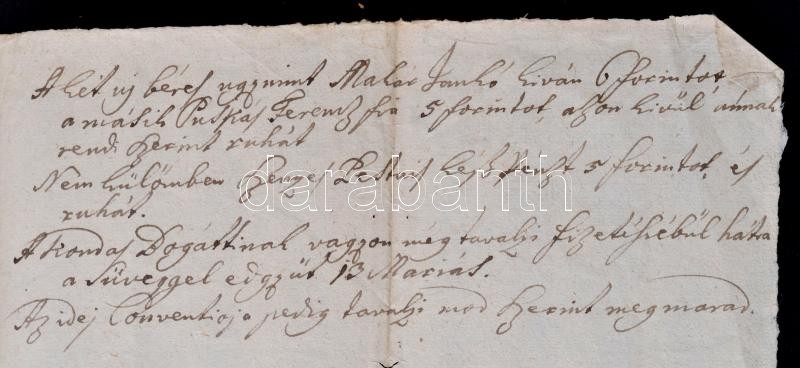 A két uj béres ugymint Makár Jankó kiván 6 forintot
a másik Puskás Ferencz fia 5 forintot, azon kivül annak
rendi szerint ruhát
Nem külömben Penzes kész pénzt 5 forintot, és
ruhát.
A Kondás Dogáttinak vagyon még tavalyi fizetésébül hátra
a süveggel edgyüt 13 Máriás.
Az idej Conventioja pedig tavalyi mod szerint megmarad.
darabanth